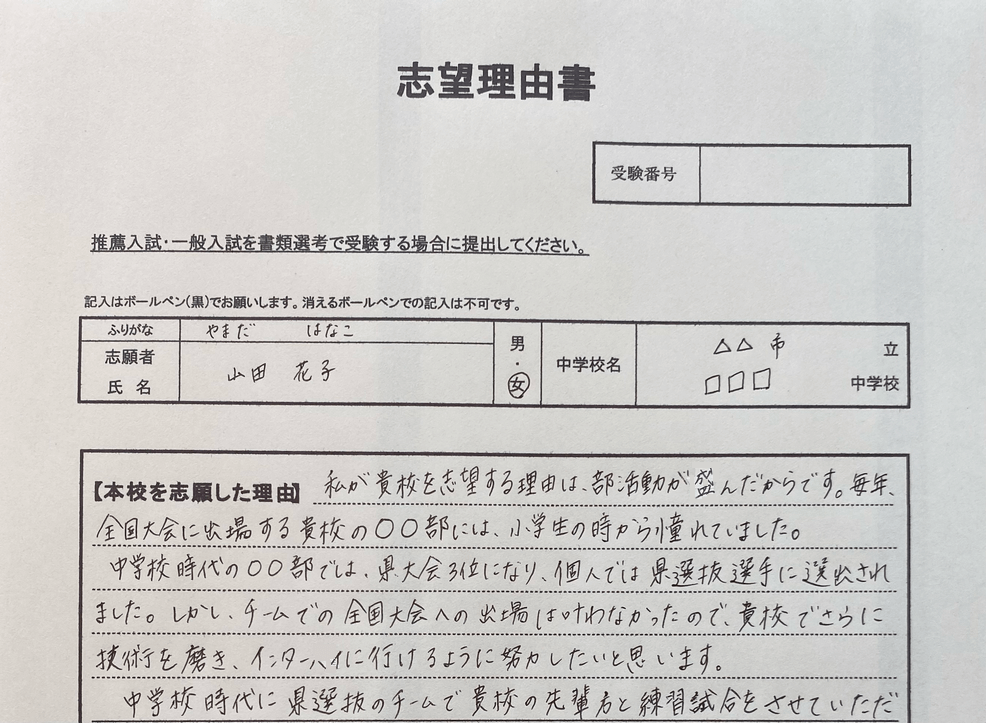 志望理由書
受験番号
推薦入試・一般入試を書類選考で受験する場合に提出してください。
記入はボールペン(黒)でお願いします。消えるボールペンでの記入は不可です。
ふりがな やまだ はなこ
志願者氏名 山田 花子
男・女
中学校名 △△市立
□□□中学校
【本校を志願した理由】 私が貴校を志望する理由は、部活動が盛んだからです。毎年、
全国大会に出場する貴校の〇〇部には、小学生の時から憧れていました。
中学校時代の〇〇部では、県大会3位になり、個人では県選抜選手に選出され
ました。しかし、チームでの全国大会への出場は叶わなかったので、貴校でさらに
技術を磨き、インターハイに行けるように努力したいと思います。
中学校時代に県選抜のチームで貴校の先輩方と練習試合をさせていただ